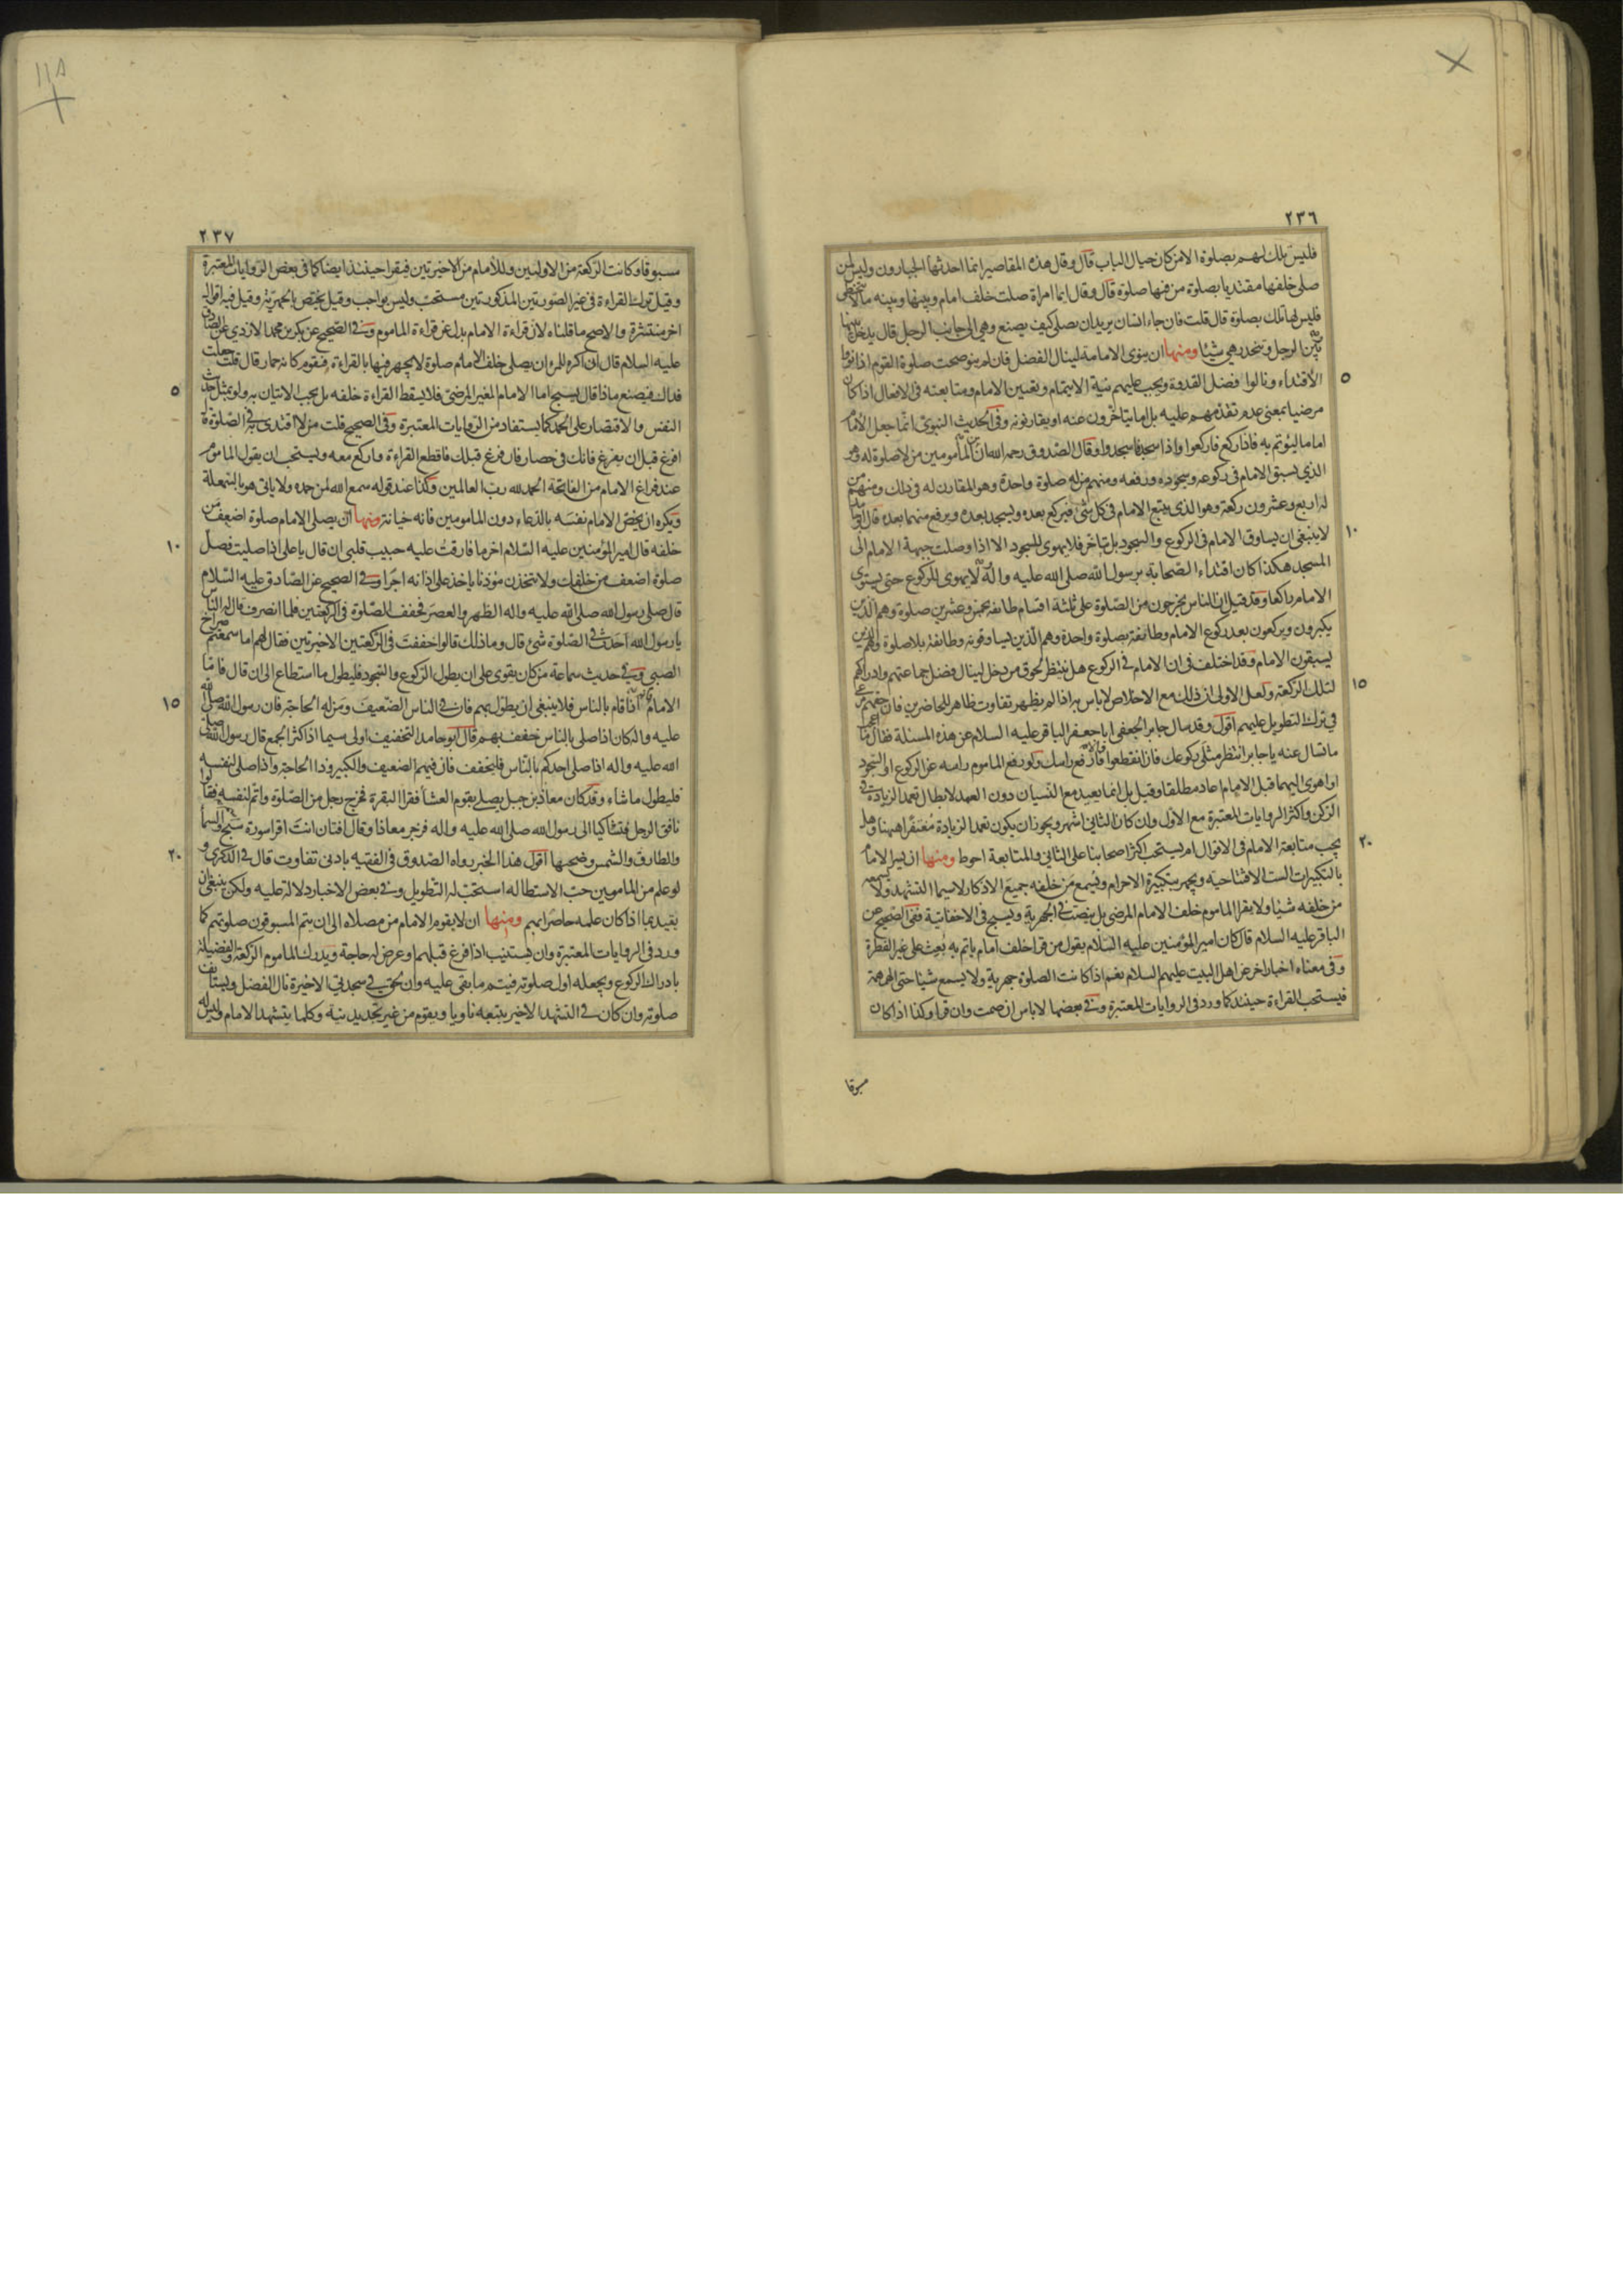 ٢٣٦
فليس تلك لهم بصلوة الا من كان حيال الباب قال وقال هذه المقاصير انما احدثها الجبارون وليس لمن
صلى خلفها مقتديا بصلوة من فيها صلوة قال وقال ايما امراة صلت خلف امام وبينها وبينه ما لا يتخطى
فليس لها تلك بصلوة قال قلت فان جاء انسان يريد ان يصلى كيف يصنع وهي الى جانب الرجل قال يدخل بينها
وبين الرجل وتنحدر هي شيئا ومنها ان ينوى الامامة لينال الفضل فان لم ينو صحت صلوة القوم اذا نووا
الاقتداء ونالوا فضل القدوة ويجب عليهم نية الايتمام وتعيين الامام ومتابعته فى الافعال اذا كان
٥
مرضيا بمعنى عدم تقدمهم عليه بل اما يتاخرون عنه او يقارنونه وفى الحديث النبوى انما جعل الامام
اماما ليؤتم به فاذا ركع فاركعوا واذا سجد فاسجدوا وقال الصدوق رحمه الله ان من المأمومين من لا صلوة له وهو
الذي يسبق الامام فى ركوعه وسجوده ورفعه ومنهم من له صلوة واحدة وهو المقارن له فى ذلك ومنهم من
له اربع وعشرون ركعة وهو الذى يتبع الامام فى كل شئ فيركع بعده ويسجد بعده ويرفع منهما بعده قال ابو حامد
لا ينبغى ان يساوق الامام فى الركوع والسجود بل يتاخر فلا يهوى للسجود الا اذا وصلت جبهة الامام الى
١٠
المسجد هكذا كان اقتداء الصحابة برسول الله صلى الله عليه واله ولا يهوى للركوع حتى يستوى
الامام راكعا وقد قيل ان الناس يخرجون من الصلوة على ثلثة اقسام طائفة بخمس وعشرين صلوة وهم الذين
يكبرون ويركعون بعد ركوع الامام وطائفة بصلوة واحدة وهم الذين يساوقونه وطائفة بلا صلوة وهم الذين
يسبقون الامام وقد اختلف فى ان الامام فى الركوع هل ينتظر لحوق من دخل لينال فضل جماعتهم وادراكهم
لتلك الركعة ولعل الاولى ان ذلك مع الاخلاص لا باس به اذا لم يظهر تفاوت ظاهر للحاضرين فان حقهم مرعى
١٥
فى ترك التطويل عليهم اقول وقد سال جابر الجعفى ابا جعفر الباقر عليه السلام عن هذه المسئلة فقال ما اعجب
ما تسال عنه يا جابر انتظر مثلى ركوعك فان انقطعوا والا فارفع راسك ولو رفع الماموم راسه عن الركوع او السجود
او اهوى اليهما قبل الامام اعاد مطلقا وقيل بل انما يعيد مع النسيان دون العمد لابطال تعمد الزيادة فى
الركن واكثر الروايات المعتبرة مع الاول وان كان الثانى اشهر ويجوز ان يكون تعمد الزيادة مغتفرا ههنا وهل
يجب متابعة الامام فى الاقوال ام يستحب اكثر اصحابنا على الثانى والمتابعة احوط ومنها ان يسر الامام
٢٠
بالتكبيرات الست الافتتاحية ويجهر بتكبيرة الاحرام ويسمع من خلفه جميع الاذكار لاسيما التشهد ولا يسمعه
من خلفه شيئا ولا يقرا الماموم خلف الامام المرضى بل ينصت فى الجهرية ويسبح فى الاخفاتية ففى الصحيح عن
الباقر عليه السلام قال كان امير المؤمنين عليه السلام يقول من قرا خلف امام ياتم به بعث على غير الفطرة
وفى معناه اخبار اخر عن اهل البيت عليهم السلام نعم اذا كانت الصلوة جهرية ولا يسمع شيئا حتى الهمهمة
فيستحب القراءة حينئذ كما ورد فى الروايات المعتبرة وفى بعضها لا باس ان صمت وان قرا وكذا اذا كان
مسبوقا
٢٣٧
مسبوقا وكانت الركعة من الاوليين وللامام من الاخيرتين فيقرا حينئذ ايضا كما فى بعض الروايات المعتبرة
وقيل ترك القراءة فى غير الصورتين المذكورتين مستحب وليس بواجب وقيل يختص بالجهرية وقيل فيه اقوال
اخر منتشرة والاصح ما قلناه لان قراءة الامام بدل عن قراءة الماموم وفى الصحيح عن بكر بن محمد الازدى عن الصادق
عليه السلام قال انى اكره للمرء ان يصلى خلف الامام صلوة لا يجهر فيها بالقراءة فيقوم كانه حمار قال قلت جعلت
فداك فيصنع ماذا قال يسبح اما الامام الغير المرضى فلا يسقط القراءة خلفه بل يجب الاتيان به ولو بمثل حديث
٥
النفس والاقتصار على الحمد كما يستفاد من الروايات المعتبرة وفى الصحيح قلت من لا اقتدى به فى الصلوة قال
افرغ قبل ان يفرغ فانك فى حصار فان فرغ قبلك فاقطع القراءة واركع معه ويستحب ان يقول الماموم
عند فراغ الامام من الفاتحة الحمد لله رب العالمين وكذا عند قوله سمع الله لمن حمده ولا ياتى هو بالسمعلة
ويكره ان يخص الامام نفسه بالدعاء دون المامومين فانه خيانة ومنها ان يصلى الامام صلوة اضعف من
خلفه قال امير المؤمنين عليه السلام اخر ما فارقت عليه حبيب قلبى ان قال يا على اذا صليت فصل
١٠
صلوة اضعف من خلفك ولا تتخذن مؤذنا ياخذ على اذانه اجرا وفى الصحيح عن الصادق عليه السلام
قال صلى رسول الله صلى الله عليه واله الظهر والعصر فخفف الصلوة فى الركعتين فلما انصرف قال له الناس
يا رسول الله احدث فى الصلوة شئ قال وما ذلك قالوا خففت فى الركعتين الاخيرتين فقال لهم اما سمعتم صراخ
الصبى وفى حديث سماعة من كان يقوى على ان يطول الركوع والسجود فليطول ما استطاع الى ان قال فاما
الامام فانه اذا قام بالناس فلا ينبغى ان يطول بهم فان فى الناس الضعيف ومن له الحاجة فان رسول الله صلى الله
١٥
عليه واله كان اذا صلى بالناس خفف بهم قال ابو حامد التخفيف اولى سيما اذا كثر الجمع قال رسول الله صلى
الله عليه واله اذا صلى احدكم بالناس فليخفف فان فيهم الضعيف والكبير وذا الحاجة واذا صلى لنفسه
فليطول ما شاء وقد كان معاذ بن جبل يصلى بقوم العشا فقرا البقرة فخرج رجل من الصلوة واتم لنفسه فقالوا
نافق الرجل فتشاكيا الى رسول الله صلى الله عليه واله فزجر معاذا وقال افتان انت اقرا سورة سبح والسماء
والطارق والشمس وضحيها اقول هذا الخبر رواه الصدوق فى الفقيه بادنى تفاوت قال فى الذكرى و
٢٠
لو علم من المامومين حب الاستطالة استحب له التطويل وفى بعض الاخبار دلالة عليه ولكن ينبغى ان
يقيد بما اذا كان علمه حاصرا بهم ومنها ان لا يقوم الامام من مصلاه الى ان يتم المسبوقون صلوتهم كما
ورد فى الروايات المعتبرة وان يستنيب اذا فرغ قبلهم او عرض له حاجة ويدرك الماموم الركعة والفضيلة
بادراك الركوع ويجعله اول صلوته فيتم ما بقى عليه وان لحق فى سجدتى الاخيرة نال الفضل ويستانف
صلوته وان كان فى التشهد الاخير يتبعه ناويا ويقوم من غير تجديد نية وكلما يتشهد الامام وليس له
١١٨